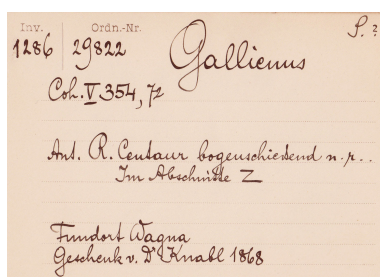 Inv. Ordn.-Nr. S. ?
1286 29822 Gallienus
Coh. V 354, 72
Ant. R. Centaur bogenschießend n. r..
Im Abschnitte Z
Fundort Wagna
Geschenk v. Dr Knabl 1868